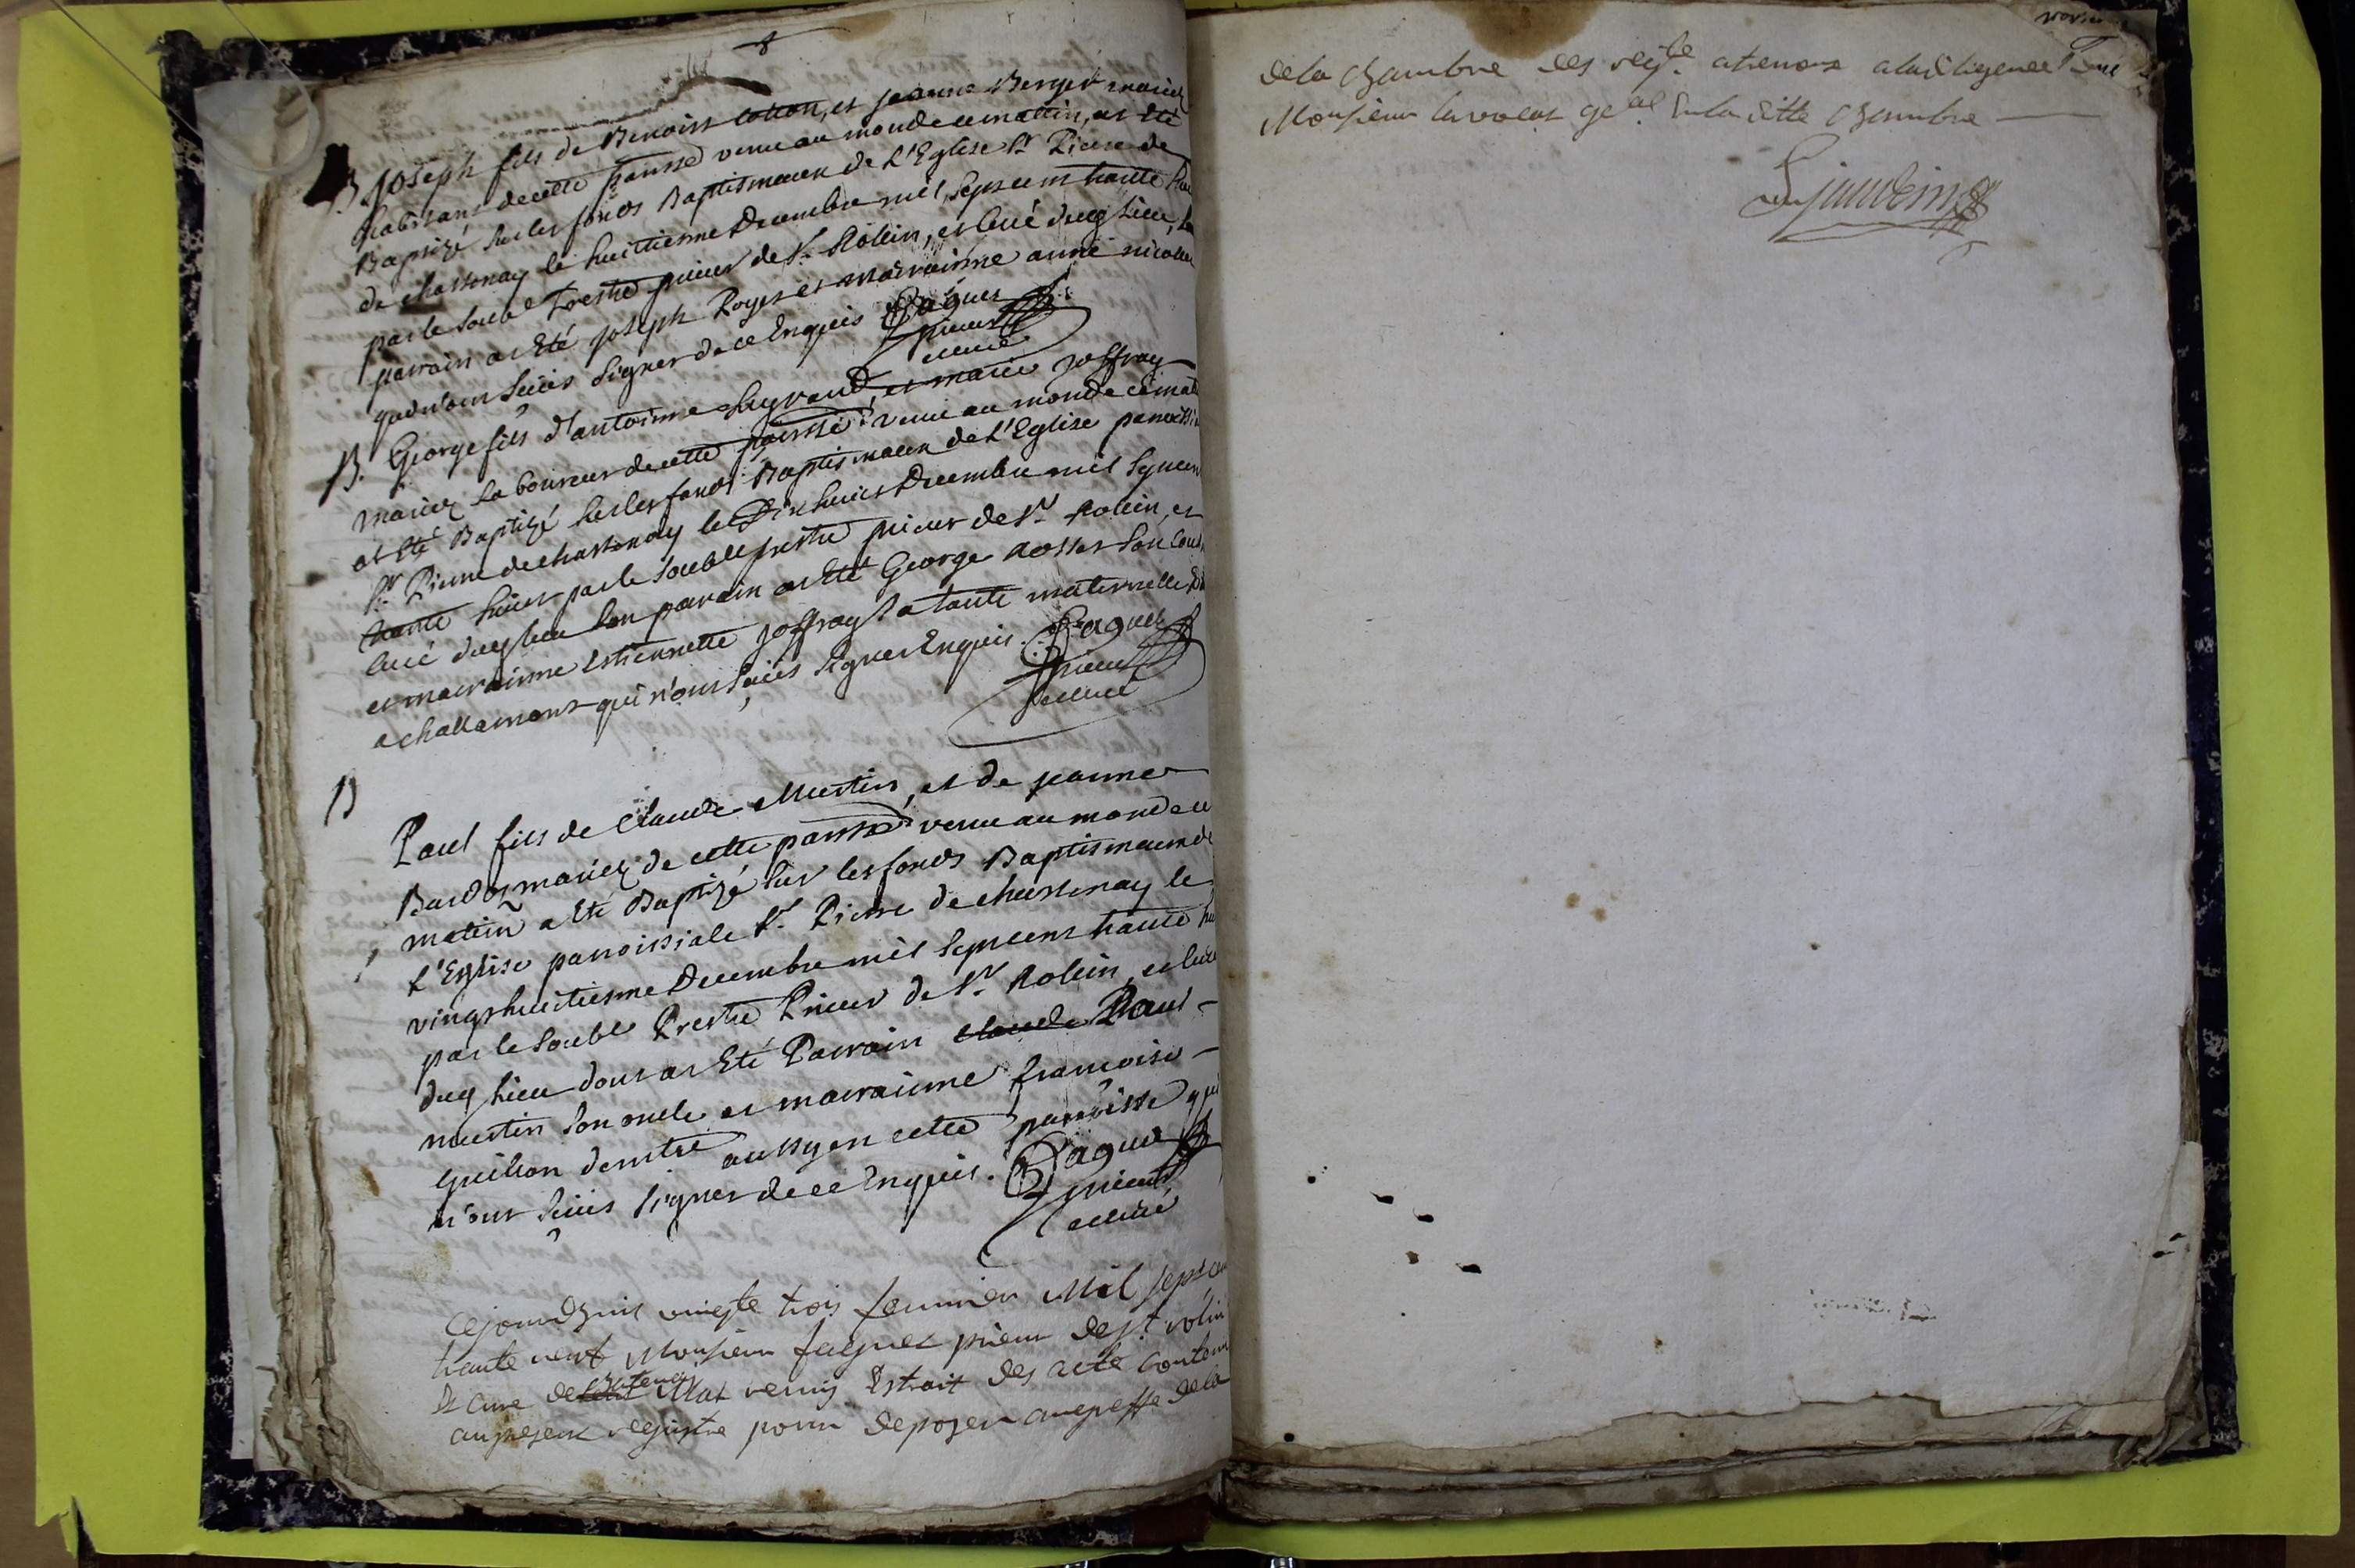 8
B. Joseph fils de Benoist Cotton, et jeanne Berger mariez
habitans de cette parisse venu au monde ce mattin, at Eté
Baptizé sur les fonds Baptismaux de L'Eglise St Pierre de
de chastenay le huitienne Decembre mil sepscens trante
par le soublé Prestre prieur de St Rollin, et Curé du lieu,
parrain at Eté joseph Roger et marrainne anne nicollet
qui n'ont sceüs signer de ce Enquis
prieur
et curé
B. George fils d'antoinne et marie joffray
mariez Laboureur de cette parisse venu au monde ce matin
at Eté Baptizé sur les fonds Baptismaux de L'Eglise
St Pierre de chastenay le Dix huict Decembre mil Spscens
trante huict par le soublé prestre prieur de St Rollin, et
Curé du lieu son parrain at Eté George son
et marrainne Estiennette joffray sa tante maternelle
a challamont qui n'ont sceüs signer Enquis.
prieur
et curé
B
Paul fils de Claude Martin, et de jeanne
mariez de cette parisse venu au monde ce
matin a Eté Baptizé sur les fonds Baptismaux de
L'Eglise parroissiale St Pierre de chastenay le
vingt huictienne Decembre mil Sepscens trante
par le soublé Prestre Prieur de St Rollin, et Curé
du lieu dont at Eté Parrain Claude Paul
martin son oncle et marrainne francoise
Guillon demtre aussy en cette parroisse qui
n'ont sceüs signer de ce Enquis.
prieur
et curé
Cejourdhuis vingte trois feuvrier Mil sept cen
trante neuf Monsieur prieur de St rolin
Et Cure de chatenay Mat remis Extrait des acte Contenu
au present registre pour deposer au greffe de la
de la Chambre des a la diligence
Monsieur lavocat geal En la ditte Chambre